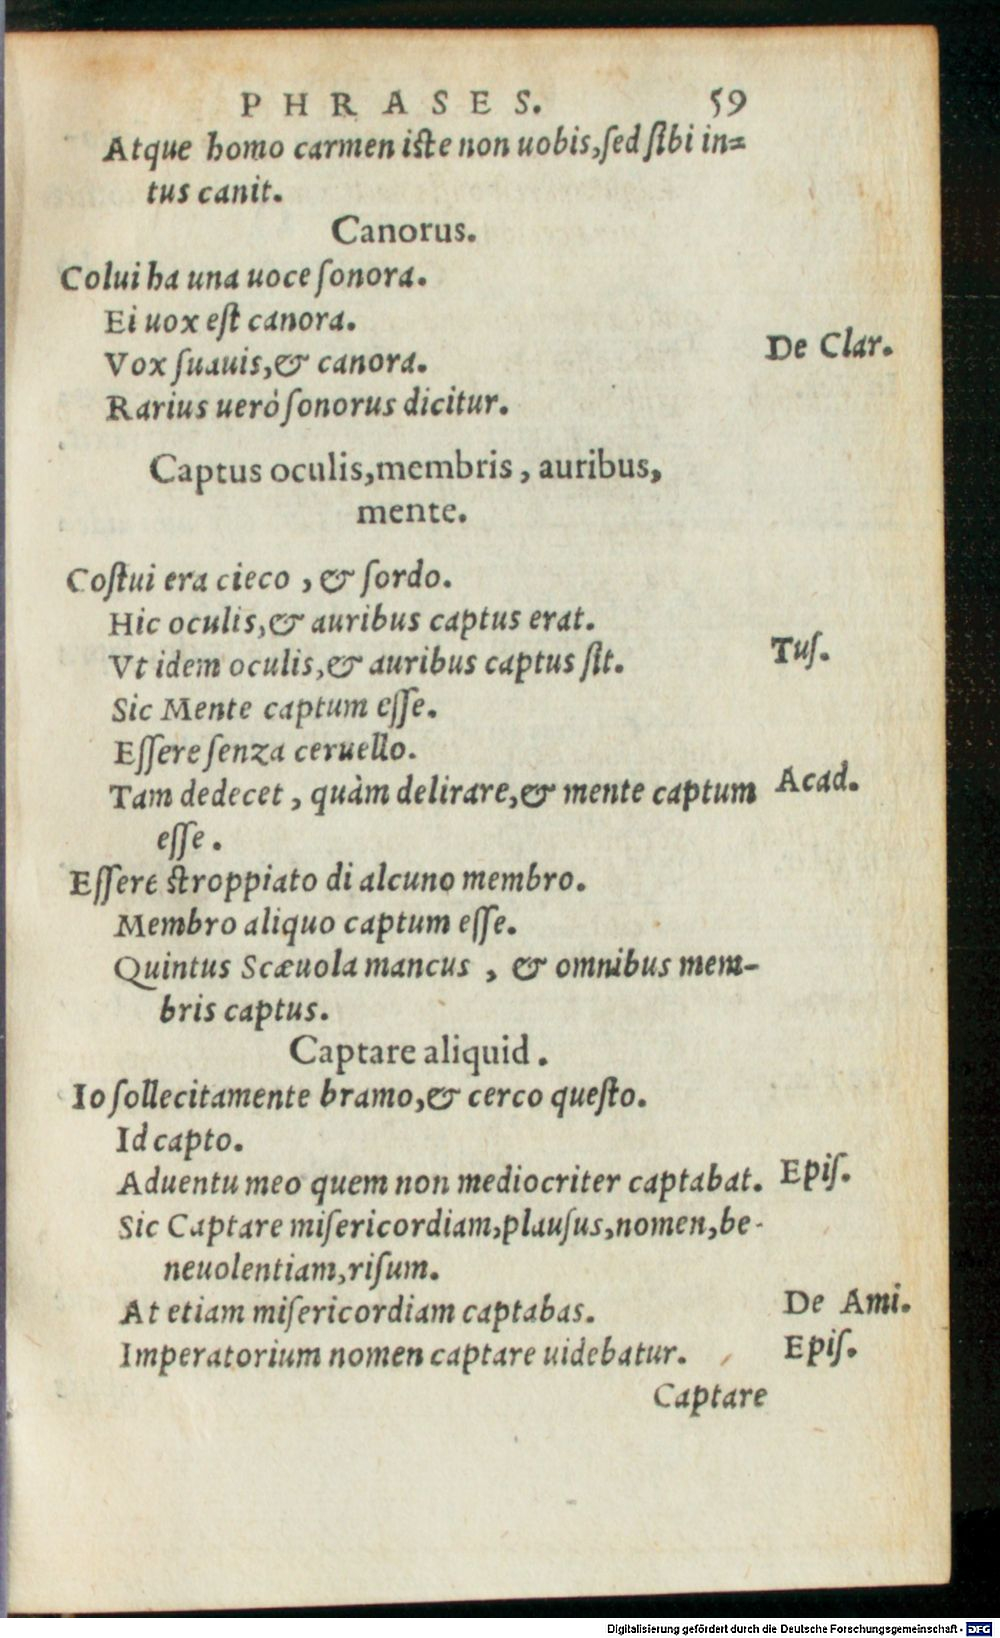 PHRASES. 59
Atque homo carmen iste non uobis, sed sibi in=
tus canit.
Canorus.
Colui ha una uoce sonora.
Ei uox est canora.
Vox suauis, & canora. De Clar.
Rarius uerò sonorus dicitur.
Captus oculis, membris, auribus,
mente.
Costui era cieco, & sordo.
Hic oculis, & auribus captus erat.
Vt idem oculis, & auribus captus sit. Tus.
Sic Mente captum esse.
Essere senza ceruello.
Tam dedecet, quàm delirare, & mente captum Acad.
esse.
Essere stroppiato di alcuno membro.
Membro aliquo captum esse.
Quintus Scæuola mancus, & omnibus mem-
bris captus.
Captare aliquid.
Io sollecitamente bramo, & cerco questo.
Id capto.
Aduentu meo quem non mediocriter captabat. Epis.
Sic Captare misericordiam, plausus, nomen, be-
neuolentiam, risum.
At etiam misericordiam captabas. De Ami.
Imperatorium nomen captare uidebatur. Epis.
Captare
Digitalisierung gefördert durch die Deutsche Forschungsgemeinschaft - DFG